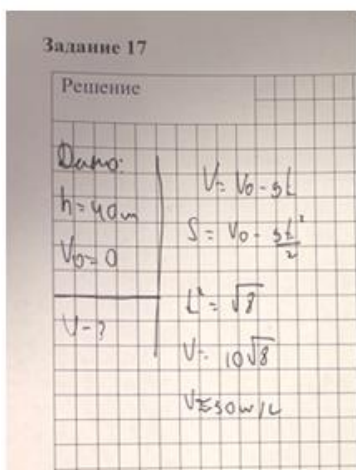 Задание 17
Решение
Дано:
h = 40м
V0 = 0
V - ?
V = V0 - gt
S = V0 - gt²/2
t² = √8
V = 10√8
V ≈ 30 м/с